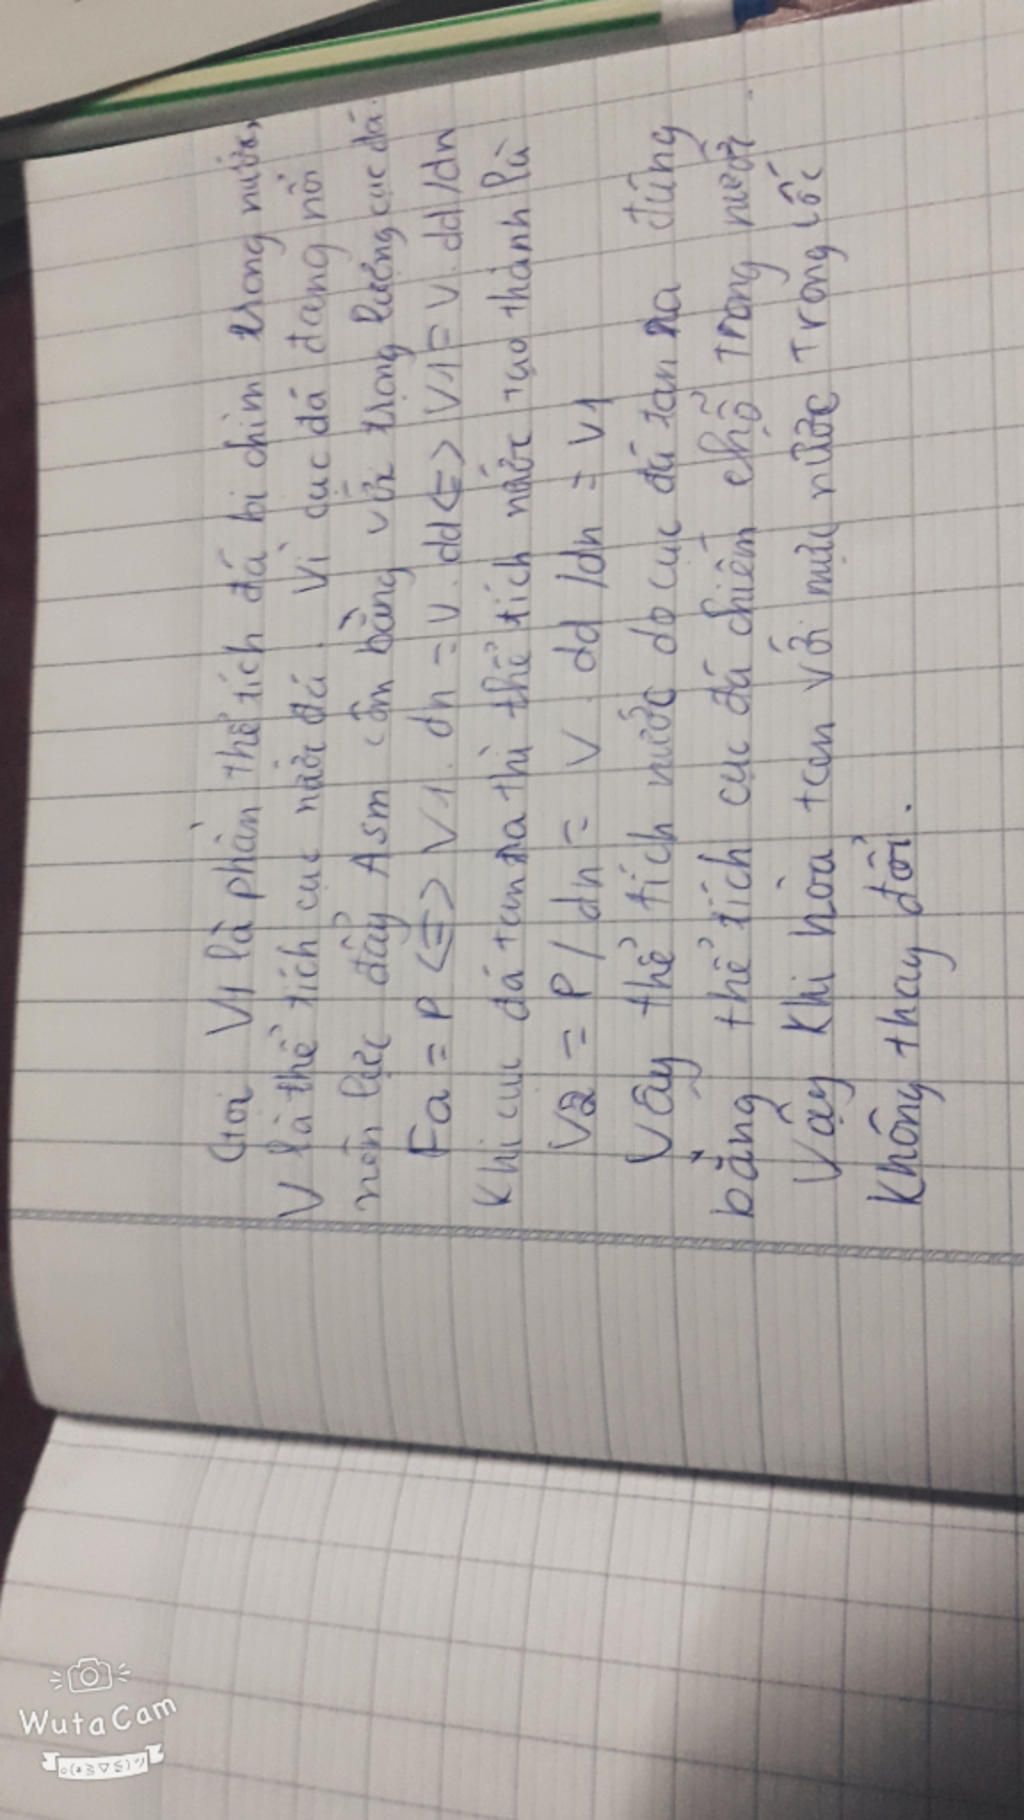 Gọi V1 là phần thể tích đá bị chìm trong nước,
V là thể tích cục nước đá. Vì cục đá đang nổi
nên lực đẩy Asm cân bằng với trọng lượng cục đá.
Fa = P <=> V1. dn = V. dd <=> V1 = V. dd/dn
Khi cục đá tan ra thì thể tích nước tạo thành là
V2 = P/dn = V. dd/dn = V1
Vậy thể tích nước do cục đá tan ra đúng
bằng thể tích cục đá chiếm chỗ trong nước.
Vậy khi hòa tan với mực nước trong cốc
không thay đổi.
WutaCam